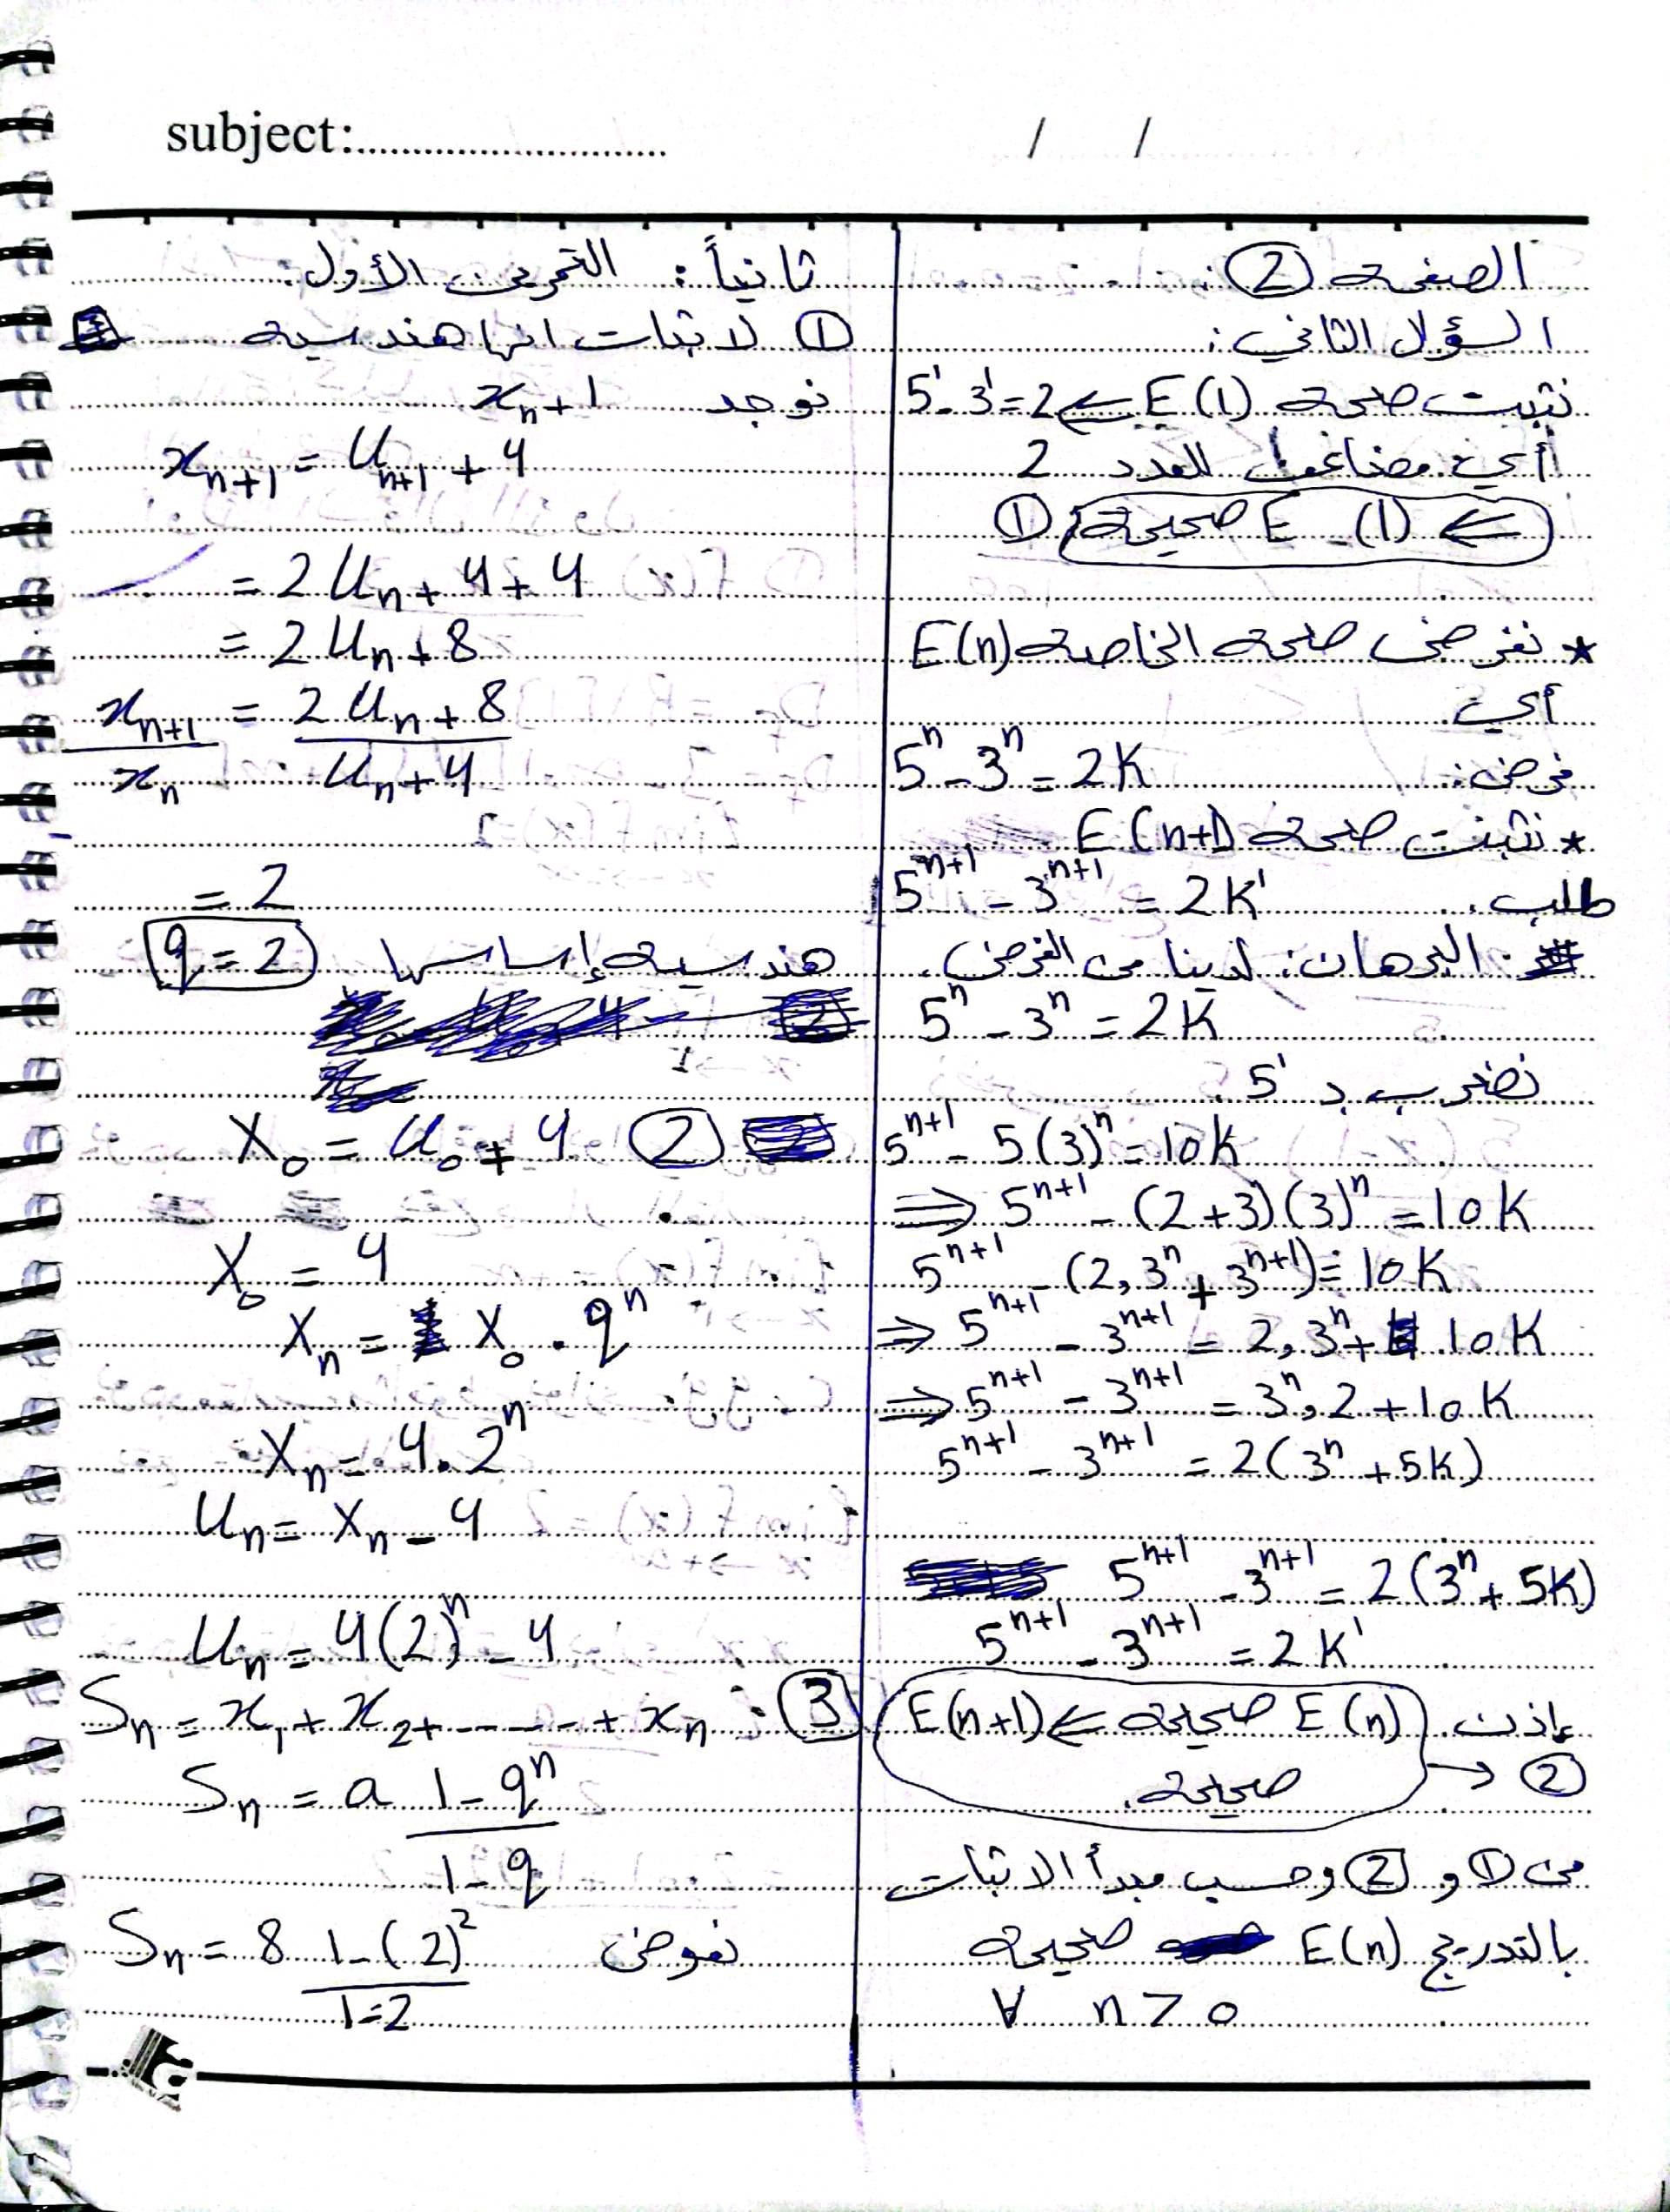 subject:
/ /
الصفحة ②:
السؤال الثاني:
نثبت صحة E(1) ⇐ 5¹-3¹=2
أي مضاعف للعدد 2
⇐ E(1) صحيحة ①
* نفرض صحة الخاصة E(n)
أي
فرض: 5ⁿ - 3ⁿ = 2K
* نثبت صحة E(n+1)
طلب. 5ⁿ⁺¹ - 3ⁿ⁺¹ = 2K'
البرهان: لدينا من الفرض.
5ⁿ - 3ⁿ = 2K
نضرب بـ 5¹
5ⁿ⁺¹ - 5(3)ⁿ = 10K
⇒ 5ⁿ⁺¹ - (2+3)(3)ⁿ = 10K
5ⁿ⁺¹ - (2.3ⁿ + 3ⁿ⁺¹) = 10K
⇒ 5ⁿ⁺¹ - 3ⁿ⁺¹ = 2.3ⁿ + 10K
⇒ 5ⁿ⁺¹ - 3ⁿ⁺¹ = 3ⁿ.2 + 10K
5ⁿ⁺¹ - 3ⁿ⁺¹ = 2(3ⁿ + 5K)
5ⁿ⁺¹ - 3ⁿ⁺¹ = 2(3ⁿ + 5K)
5ⁿ⁺¹ - 3ⁿ⁺¹ = 2K'
إذن E(n) صحيحة ⇐ E(n+1)
صحيحة. → ②
من ① و ② وحسب مبدأ الاثبات
بالتدريج E(n) صحيحة
∀ n > 0
ثانياً: التمرين الأول:
① لاثبات انها هندسية
نوجد xₙ+1
xₙ₊₁ = Uₙ₊₁ + 4
= 2Uₙ + 4 + 4
= 2Uₙ + 8
xₙ₊₁/xₙ = (2Uₙ + 8)/(Uₙ + 4)
= 2
هندسية إساسها q = 2
② X₀ = U₀ + 4
X₀ = 4
Xₙ = X₀ . qⁿ
Xₙ = 4.2ⁿ
Uₙ = Xₙ - 4
Uₙ = 4(2)ⁿ - 4
③: Sₙ = x₁ + x₂ + ------ + xₙ
Sₙ = a (1 - qⁿ)/(1 - q)
نعوض Sₙ = 8 (1 - (2)²)/(1 - 2)